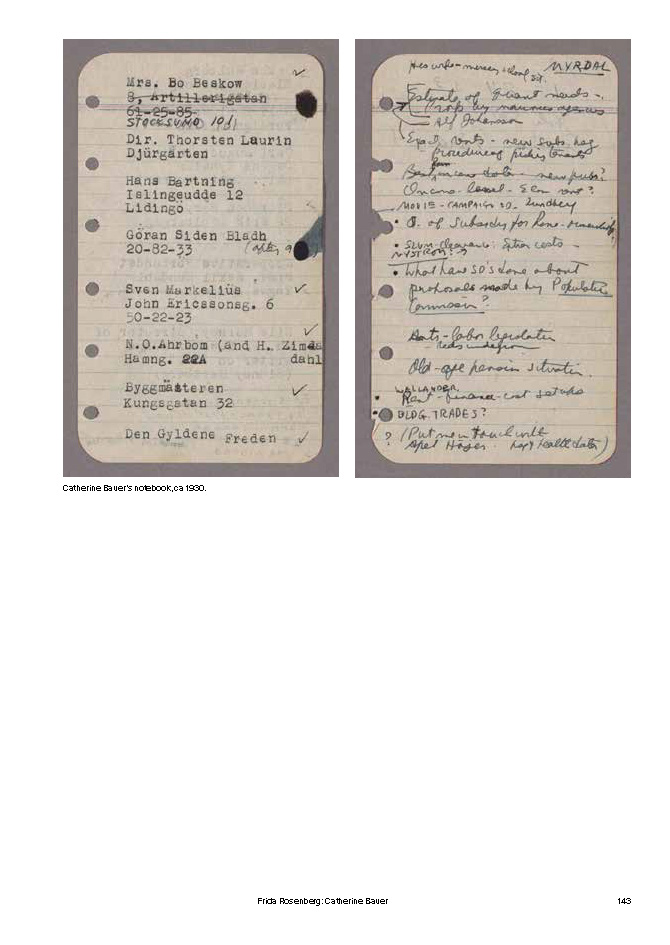 Mrs. Bo Beskow
8, Artillerigatan
61-25-85
STOCKSUND 1031
Dir. Thorsten Laurin
Djürgärten
Hans Bartning
Islingeudde 12
Lidingo
Göran Siden Bladh
20-82-33 (after 9
Sven Markelius
John Ericssonsg. 6
50-22-23
N.O.Ahrbom (and H. Zimda
Hamng. 22A dahl
Byggmästeren
Kungsgatan 32
Den Gyldene Freden
His wife - MYRDAL
Estimate of needs -
Prop by
Alf Johansson
rents - new subs. hsg
Best on new pubs?
Income-level - rent?
MOVIE-CAMPAIGN SD - Lundberg
• Q. of Subsidy for home-ownership?
• SLUM-clearance: costs -
NYSTROM?
• What have SD's done about
proposals made by Population
Commission?
Anti-labor legislation
Old-age pension situation
WALLANDER.
• Rent-finance-cost set-ups
• BLDG. TRADES?
? (Put me in touch with
Axel)
Catherine Bauer's notebook,ca 1930.
Frida Rosenberg: Catherine Bauer
143